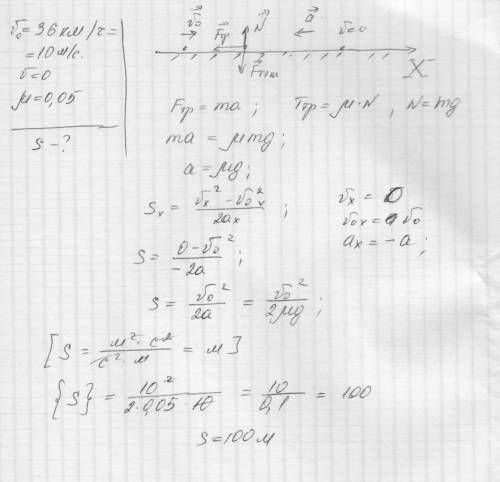 v₀ = 36 км/ч =
= 10 м/с.
v = 0
μ = 0,05
S – ?
v₀ Fтр N a v=0
Fтяж X
Fтр = ma ; Tтр = μ·N , N = mg
ma = μmg ;
a = μg ;
Sₓ = (vₓ² – v₀ₓ²) / 2aₓ ; vₓ = 0
v₀ₓ = v₀
S = (0 – v₀²) / –2a ; aₓ = –a ;
S = v₀² / 2a = v₀² / 2μg ;
[S = м²·с² / с²·м = м]
{S} = 10² / 2·0,05·10 = 10 / 0,1 = 100
S = 100 м